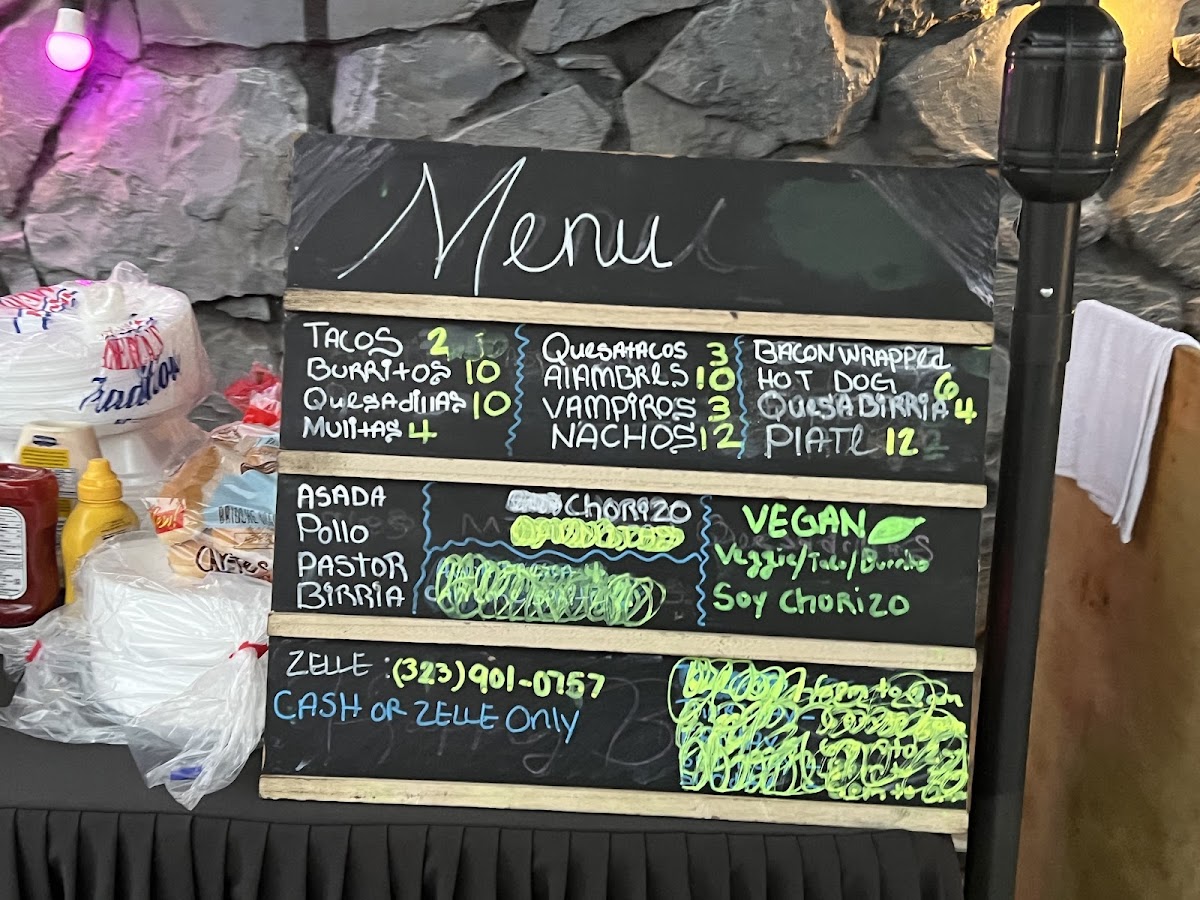 Menu
TACOS 2
BURRITOS 10
QUESADILLAS 10
MULITAS 4
QUESATACOS 3
AlAMBRES 10
VAMPIROS 3
NACHOS 12
BACON WRAPPED
HOT DOG 6
QUESABIRRIA 4
PLATE 12
ASADA
Pollo
PASTOR
BIRRIA
CHORIZO
VEGAN
Veggie/Taco/Burrito
Soy CHORIZO
ZELLE: (323) 901-0757
CASH OR ZELLE Only